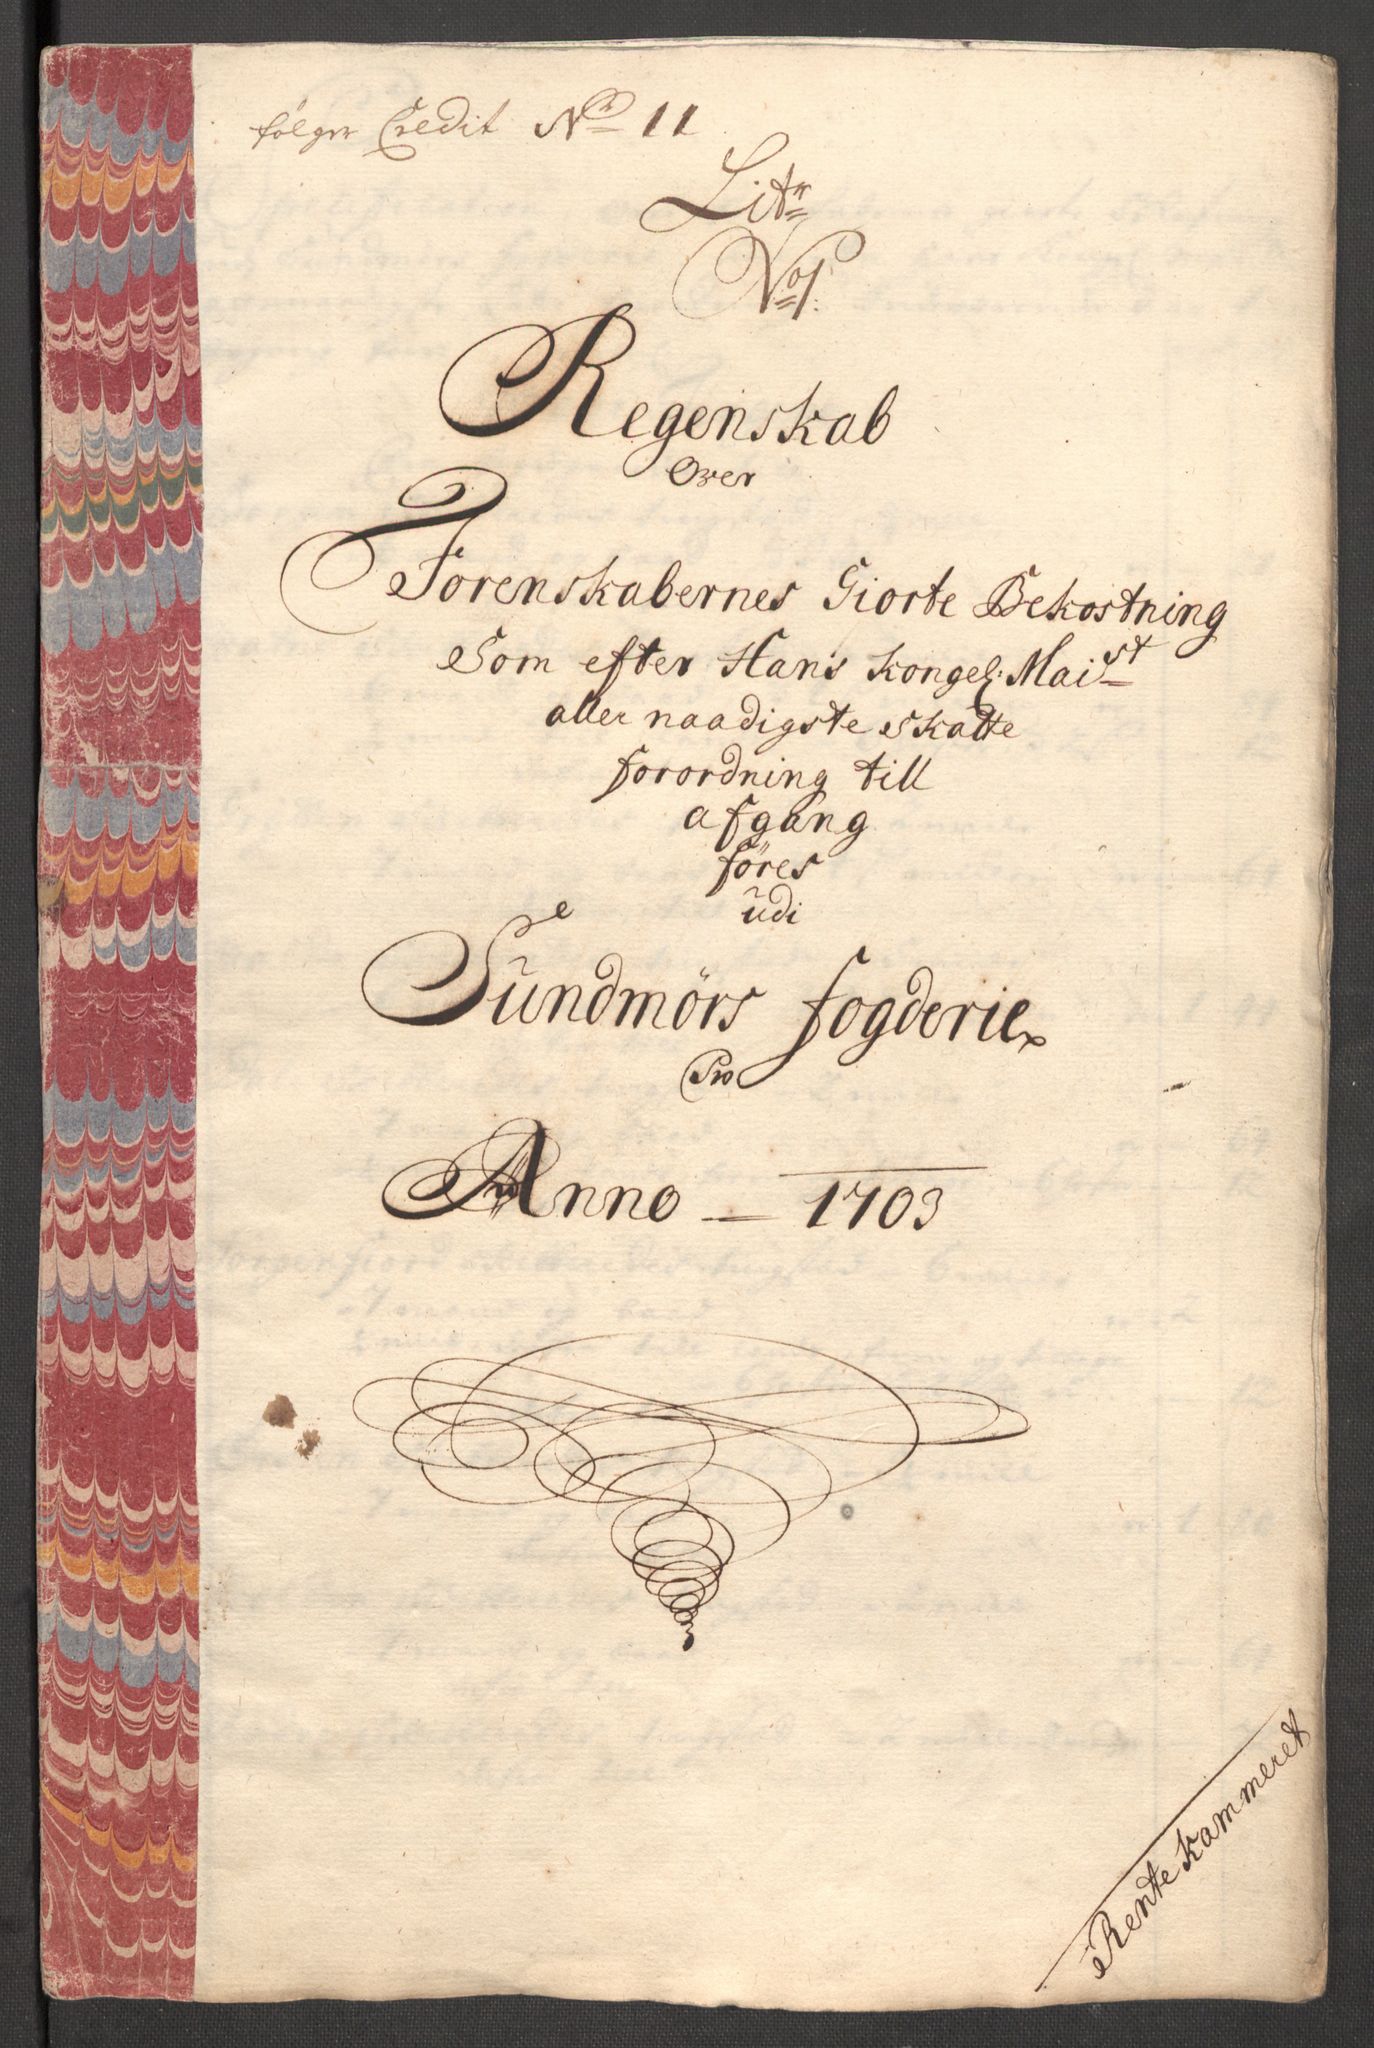 følger Credit No 11
Litr
No 1.
Regenskab
Over
Torenskabernes Giorte Bekostning
Som efter Hans Kongel: Maist
aller naadigste Skatte
forordning till
afgang
föres
udi
Sundmörs fogderie
Pro
Anno - 1703
Rente Kammeret